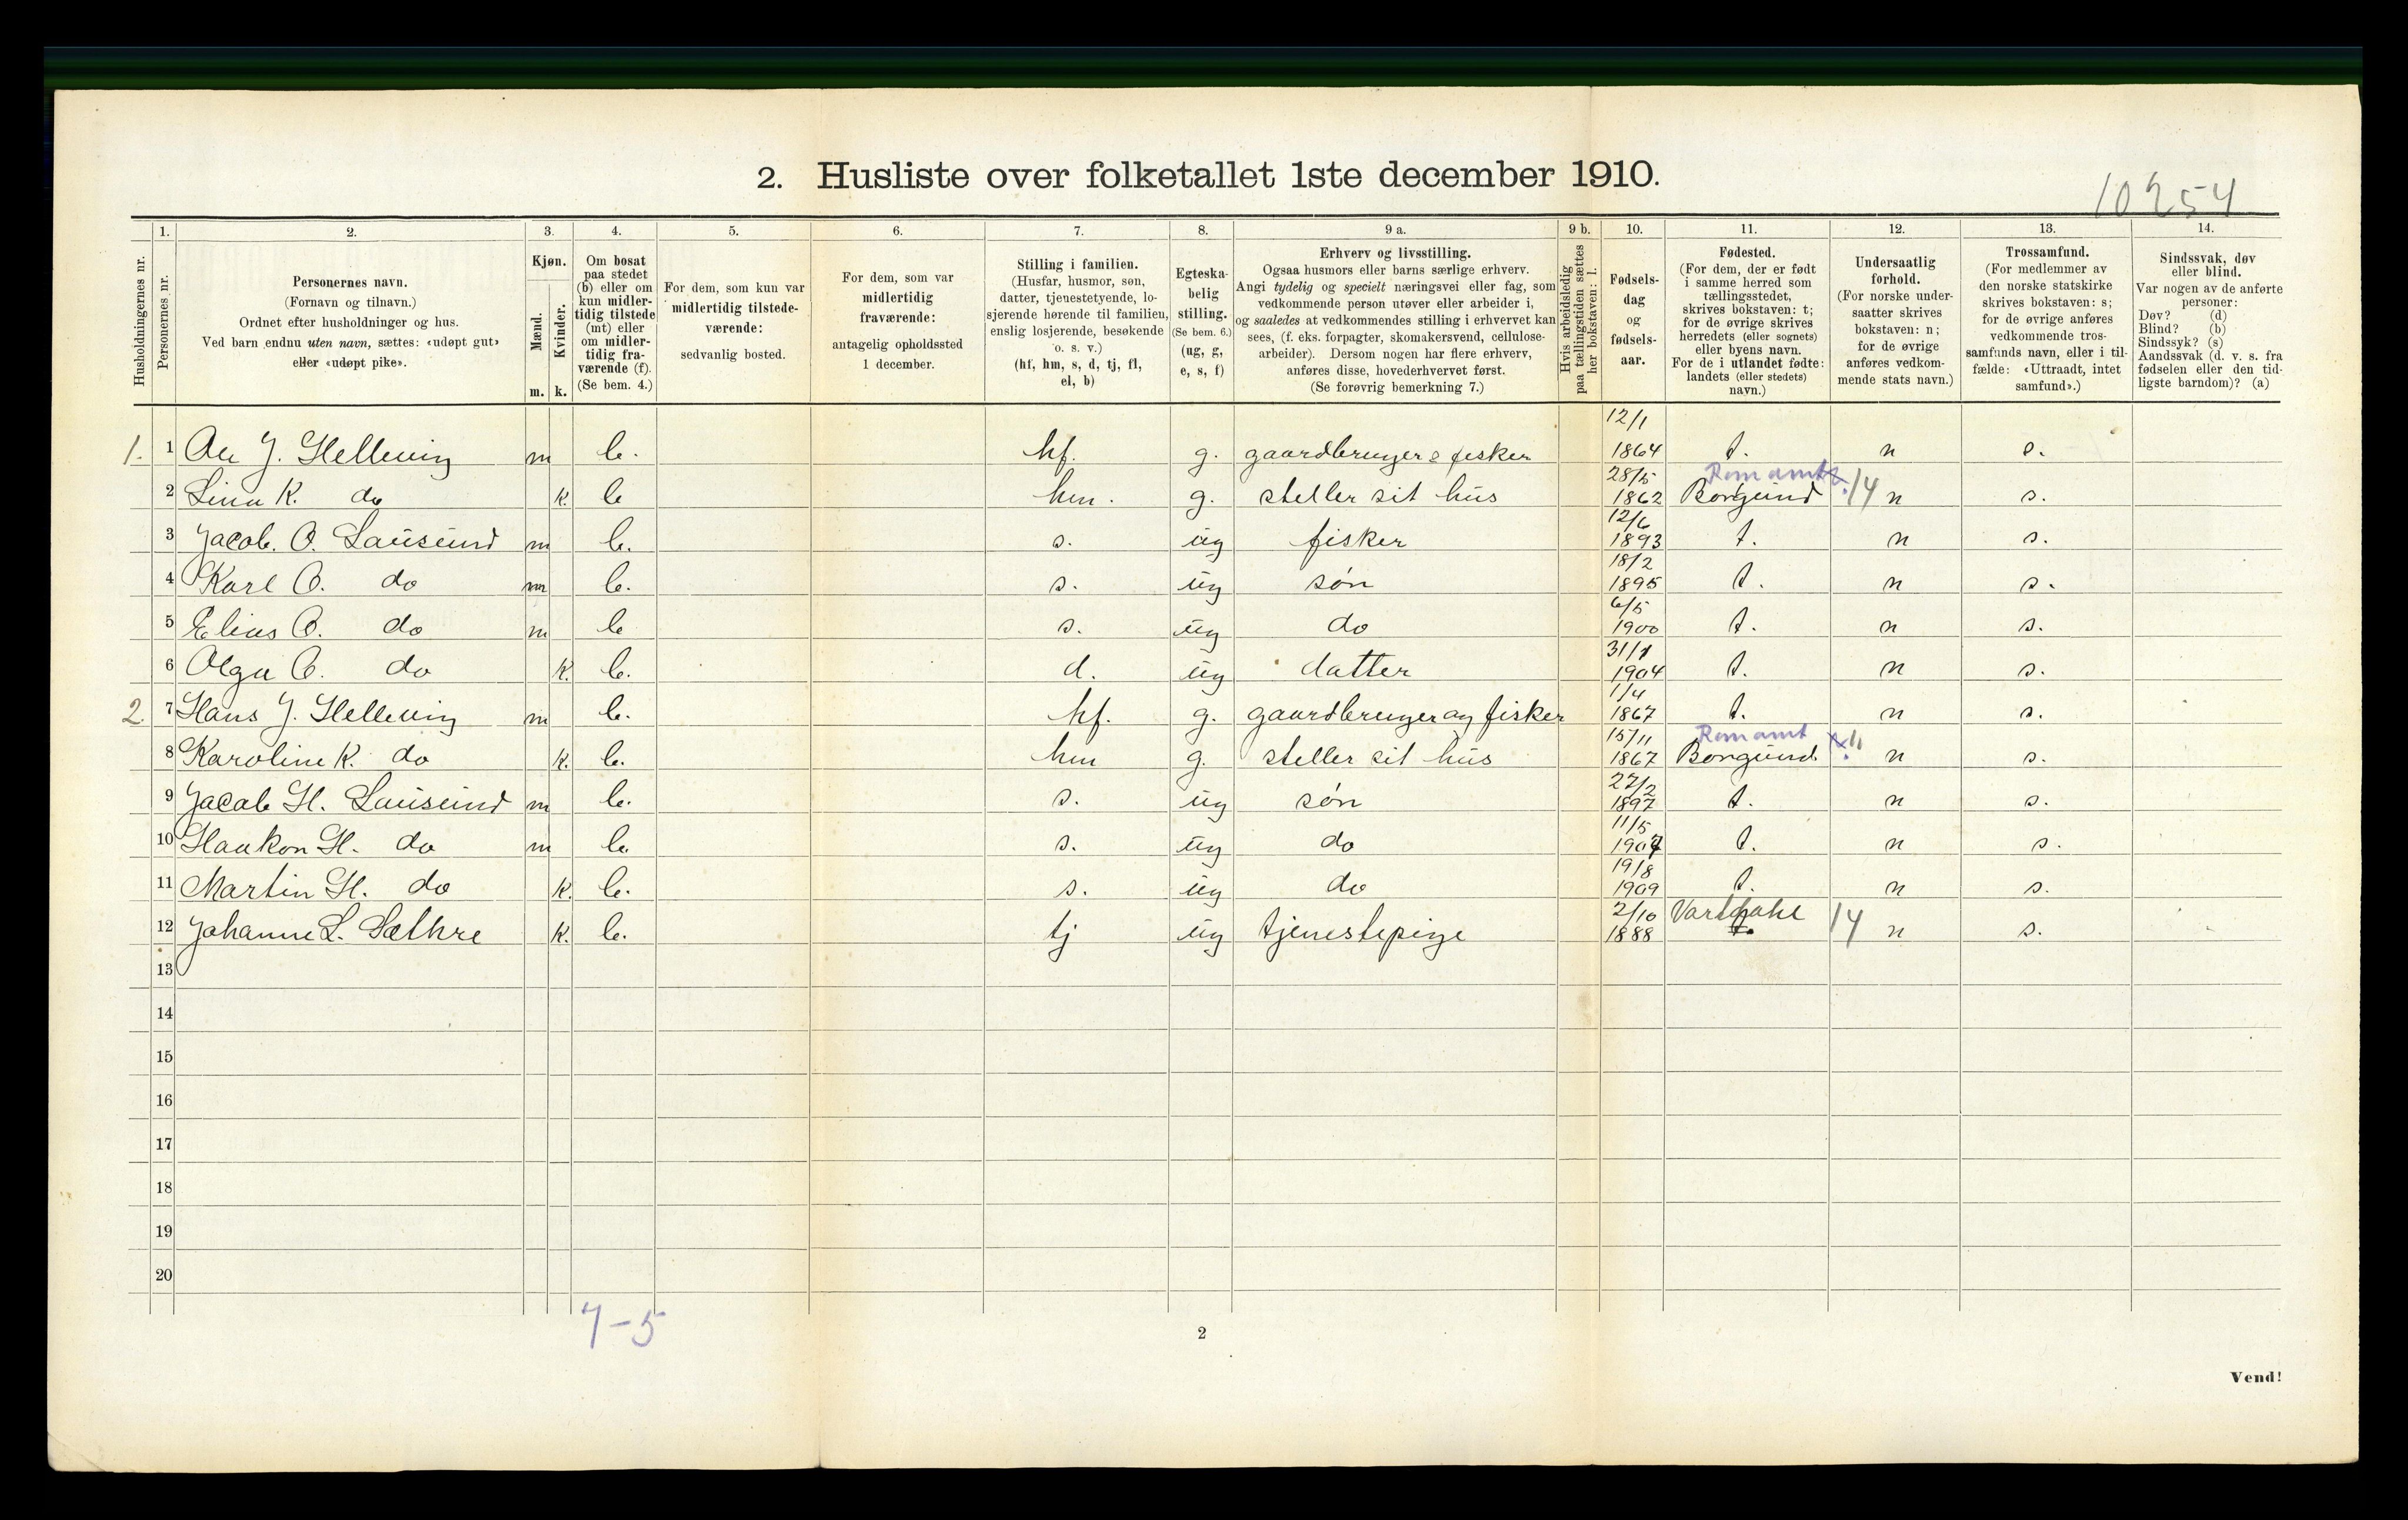 2. Husliste over folketallet 1ste december 1910.
10254
1. 2. 3. 4. 5. 6. 7. 8. 9 a. 9 b. 10. 11. 12. 13. 14.
Husholdningernes nr.
Personernes nr.
Personernes navn.
(Fornavn og tilnavn.)
Ordnet efter husholdninger og hus.
Ved barn endnu uten navn, sættes: «udøpt gut»
eller «udøpt pike».
Kjøn.
Mænd.
Kvinder.
m. k.
Om bosat
paa stedet
(b) eller om
kun midler-
tidig tilstede
(mt) eller
om midler-
tidig fra-
værende (f).
(Se bem. 4.)
For dem, som kun var
midlertidig tilstede-
værende:
sedvanlig bosted.
For dem, som var
midlertidig
fraværende:
antagelig opholdssted
1 december.
Stilling i familien.
(Husfar, husmor, søn,
datter, tjenestetyende, lo-
sjerende hørende til familien,
enslig losjerende, besøkende
o. s. v.)
(hf, hm, s, d, tj, fl,
el, b)
Egteska-
belig
stilling.
(Se bem. 6.)
(ug, g,
e, s, f)
Erhverv og livsstilling.
Ogsaa husmors eller barns særlige erhverv.
Angi tydelig og specielt næringsvei eller fag, som
vedkommende person utøver eller arbeider i,
og saaledes at vedkommendes stilling i erhvervet kan
sees, (f. eks. forpagter, skomakersvend, cellulose-
arbeider). Dersom nogen har flere erhverv,
anføres disse, hovederhvervet først.
(Se forøvrig bemerkning 7.)
Hvis arbeidsledig
paa tællingstiden sættes
her bokstaven: l.
Fødsels-
dag
og
fødsels-
aar.
Fødested.
(For dem, der er født
i samme herred som
tællingsstedet,
skrives bokstaven: t;
for de øvrige skrives
herredets (eller sognets)
eller byens navn.
For de i utlandet fødte:
landets (eller stedets)
navn.)
Undersaatlig
forhold.
(For norske under-
saatter skrives
bokstaven: n;
for de øvrige
anføres vedkom-
mende stats navn.)
Trossamfund.
(For medlemmer av
den norske statskirke
skrives bokstaven: s;
for de øvrige anføres
vedkommende tros-
samfunds navn, eller i til-
fælde: «Uttraadt, intet
samfund».)
Sindssvak, døv
eller blind.
Var nogen av de anførte
personer:
Døv? (d)
Blind? (b)
Sindssyk? (s)
Aandssvak (d. v. s. fra
fødselen eller den tid-
ligste barndom)? (a)
1. 1 J. Hellevig m b. hf. g. gaardbruger & fisker 12/1 1864 t. n s.
2 Lina K. do k. b hm. g. steller sit hus 28/5 1862 Romamt Borgund 14 n s.
3 Jacob. O. Lausund m b. s. ug fisker 12/6 1893 t. n s.
4 Karl O. do m b. s. ug søn 18/2 1895 t. n s.
5 Elias O. do m b s. ug do 6/5 1900 t. n s.
6 Olga O. do k. b. d. ug datter 31/1 1904 t. n s.
2. 7 Hans J. Hellevig m b. hf. g. gaardbruger og fisker 1/4 1867 t. n s.
8 Karoline K. do k. b. hm g. steller sit hus 15/11 1867 Romamt Borgund n s.
9 Jacob H. Lausund m b. s. ug søn 27/2 1897 t. n s.
10 Haakon H. do m b. s. ug do 11/5 1907 t. n s.
11 Martin H. do k. b. s. ug do 19/8 1909 t. n s.
12 Johanne L. Sæthre k. b. tj ug tjenestepige 2/10 1888 Vartdahl t. 14 n s.
13
14
15
16
17
18
19
20
7-5
2
Vend!